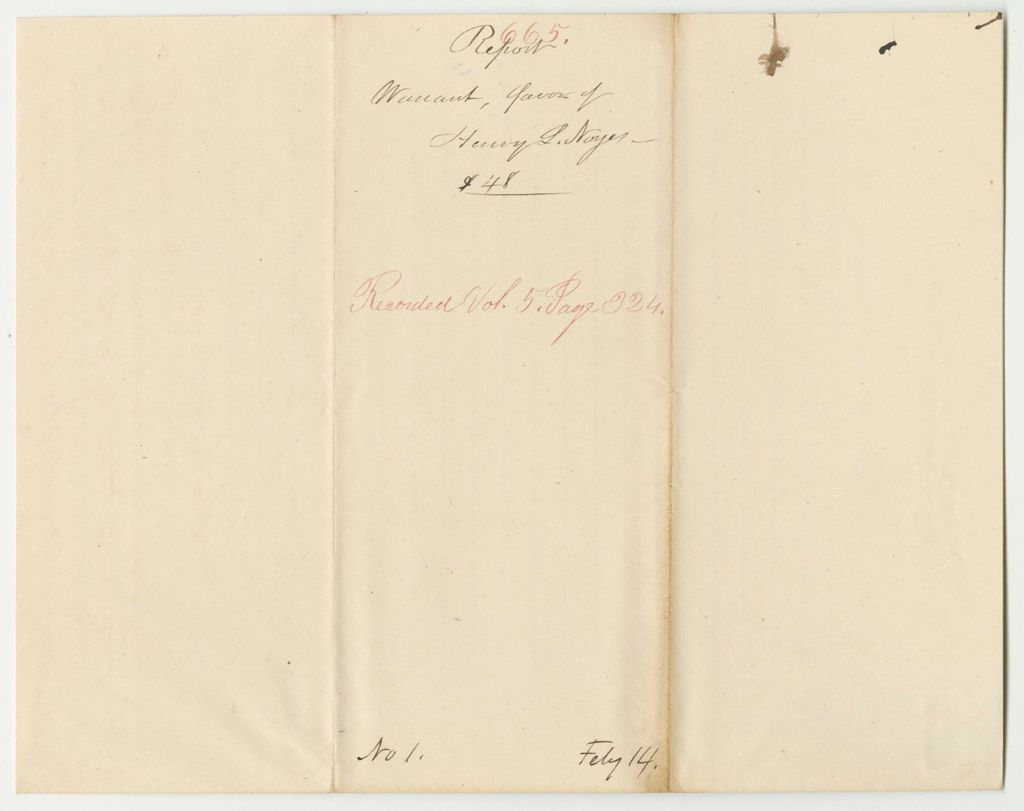 665.
Report
Warrant, favor of
Henry L. Noyes –
$48
Recorded Vol. 5. Page 324.
No 1. Feby 14.